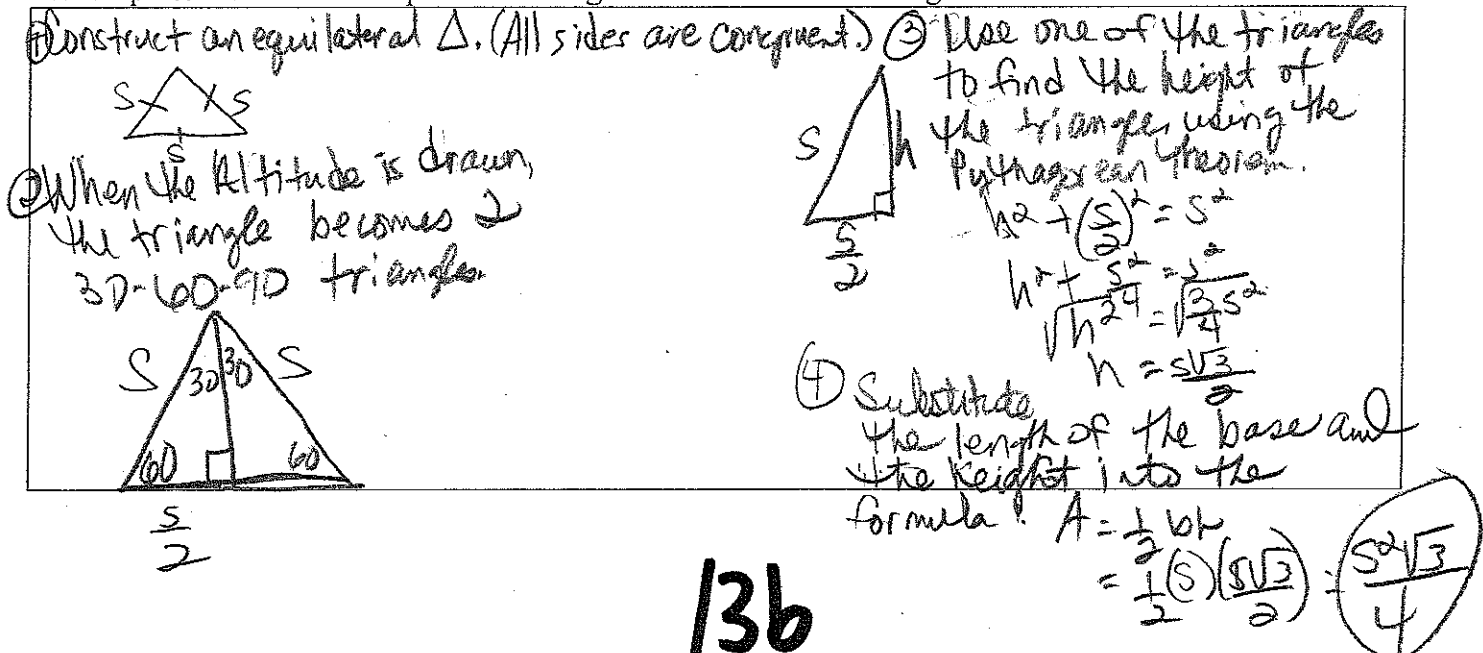 ① Construct an equilateral Δ. (All sides are congruent.)
S S
S
② When the Altitude is drawn,
the triangle becomes 2
30-60-90 triangles.
S 30 30 S
60 60
s/2
③ Use one of the triangles
to find the height of
the triangle, using the
Pythagorean theorem.
S h
s/2
h² + (s/2)² = s²
h² + s²/4 = s²
√h² = √3/4 s²
h = s√3/2
④ Substitute
the length of the base and
the height into the
formula: A = 1/2 bh
= 1/2 (s)(s√3/2) = s²√3/4
13b